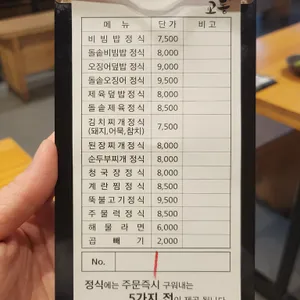 고등
메뉴 단가 비고
비빔밥정식 7,500
돌솥비빔밥정식 8,000
오징어덮밥정식 9,000
돌솥오징어정식 9,500
제육덮밥정식 8,000
돌솥제육정식 8,500
김치찌개정식 7,500
(돼지,어묵,참치)
된장찌개정식 8,000
순두부찌개정식 8,000
청국장정식 8,000
계란찜정식 8,500
뚝불고기정식 9,500
주물럭정식 8,500
해물라면 6,000
곱빼기 2,000
No. 1
정식에는 주문즉시 구워내는
5가지 전이 제공 됩니다